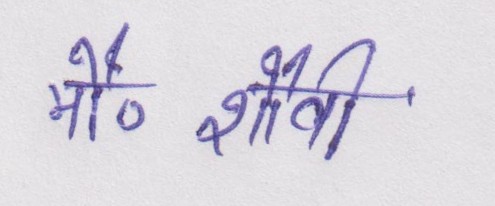 मौ० शौवी